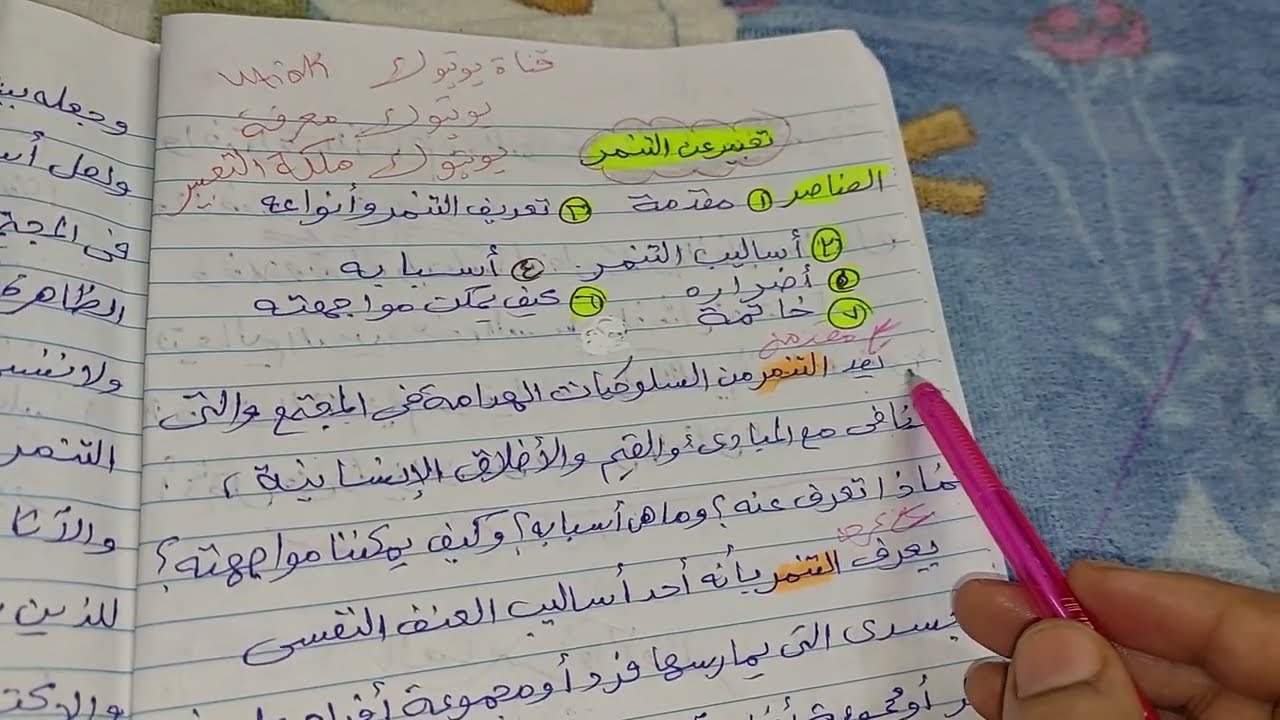 قناة يوتيوب
يوتيوب معرفة
يوتيوب ملكة التعبير
تعبير عن التنمر
العناصر ١ مقدمة ٢ تعريف التنمر وأنواعه
٣ أساليب التنمر ٤ أسبابه
٥ أضراره ٦ كيف يمكن مواجهته
٧ خاتمة
مقدمة
يعد التنمر من السلوكيات الهدامة في المجتمع والتى
مع المبادئ والقيم والأخلاق الإنسانية ،
فماذا تعرف عنه ؟ وما هى أسبابه ؟ وكيف يمكننا مواجهته ؟
عرض
يعرف التنمر بأنه أحد أساليب العنف النفسى
التى يمارسها فرد أو مجموعة
وجعله
ولعل
فى المجتمع
الظاهرة
ولا ننسى
التنمر
للذين